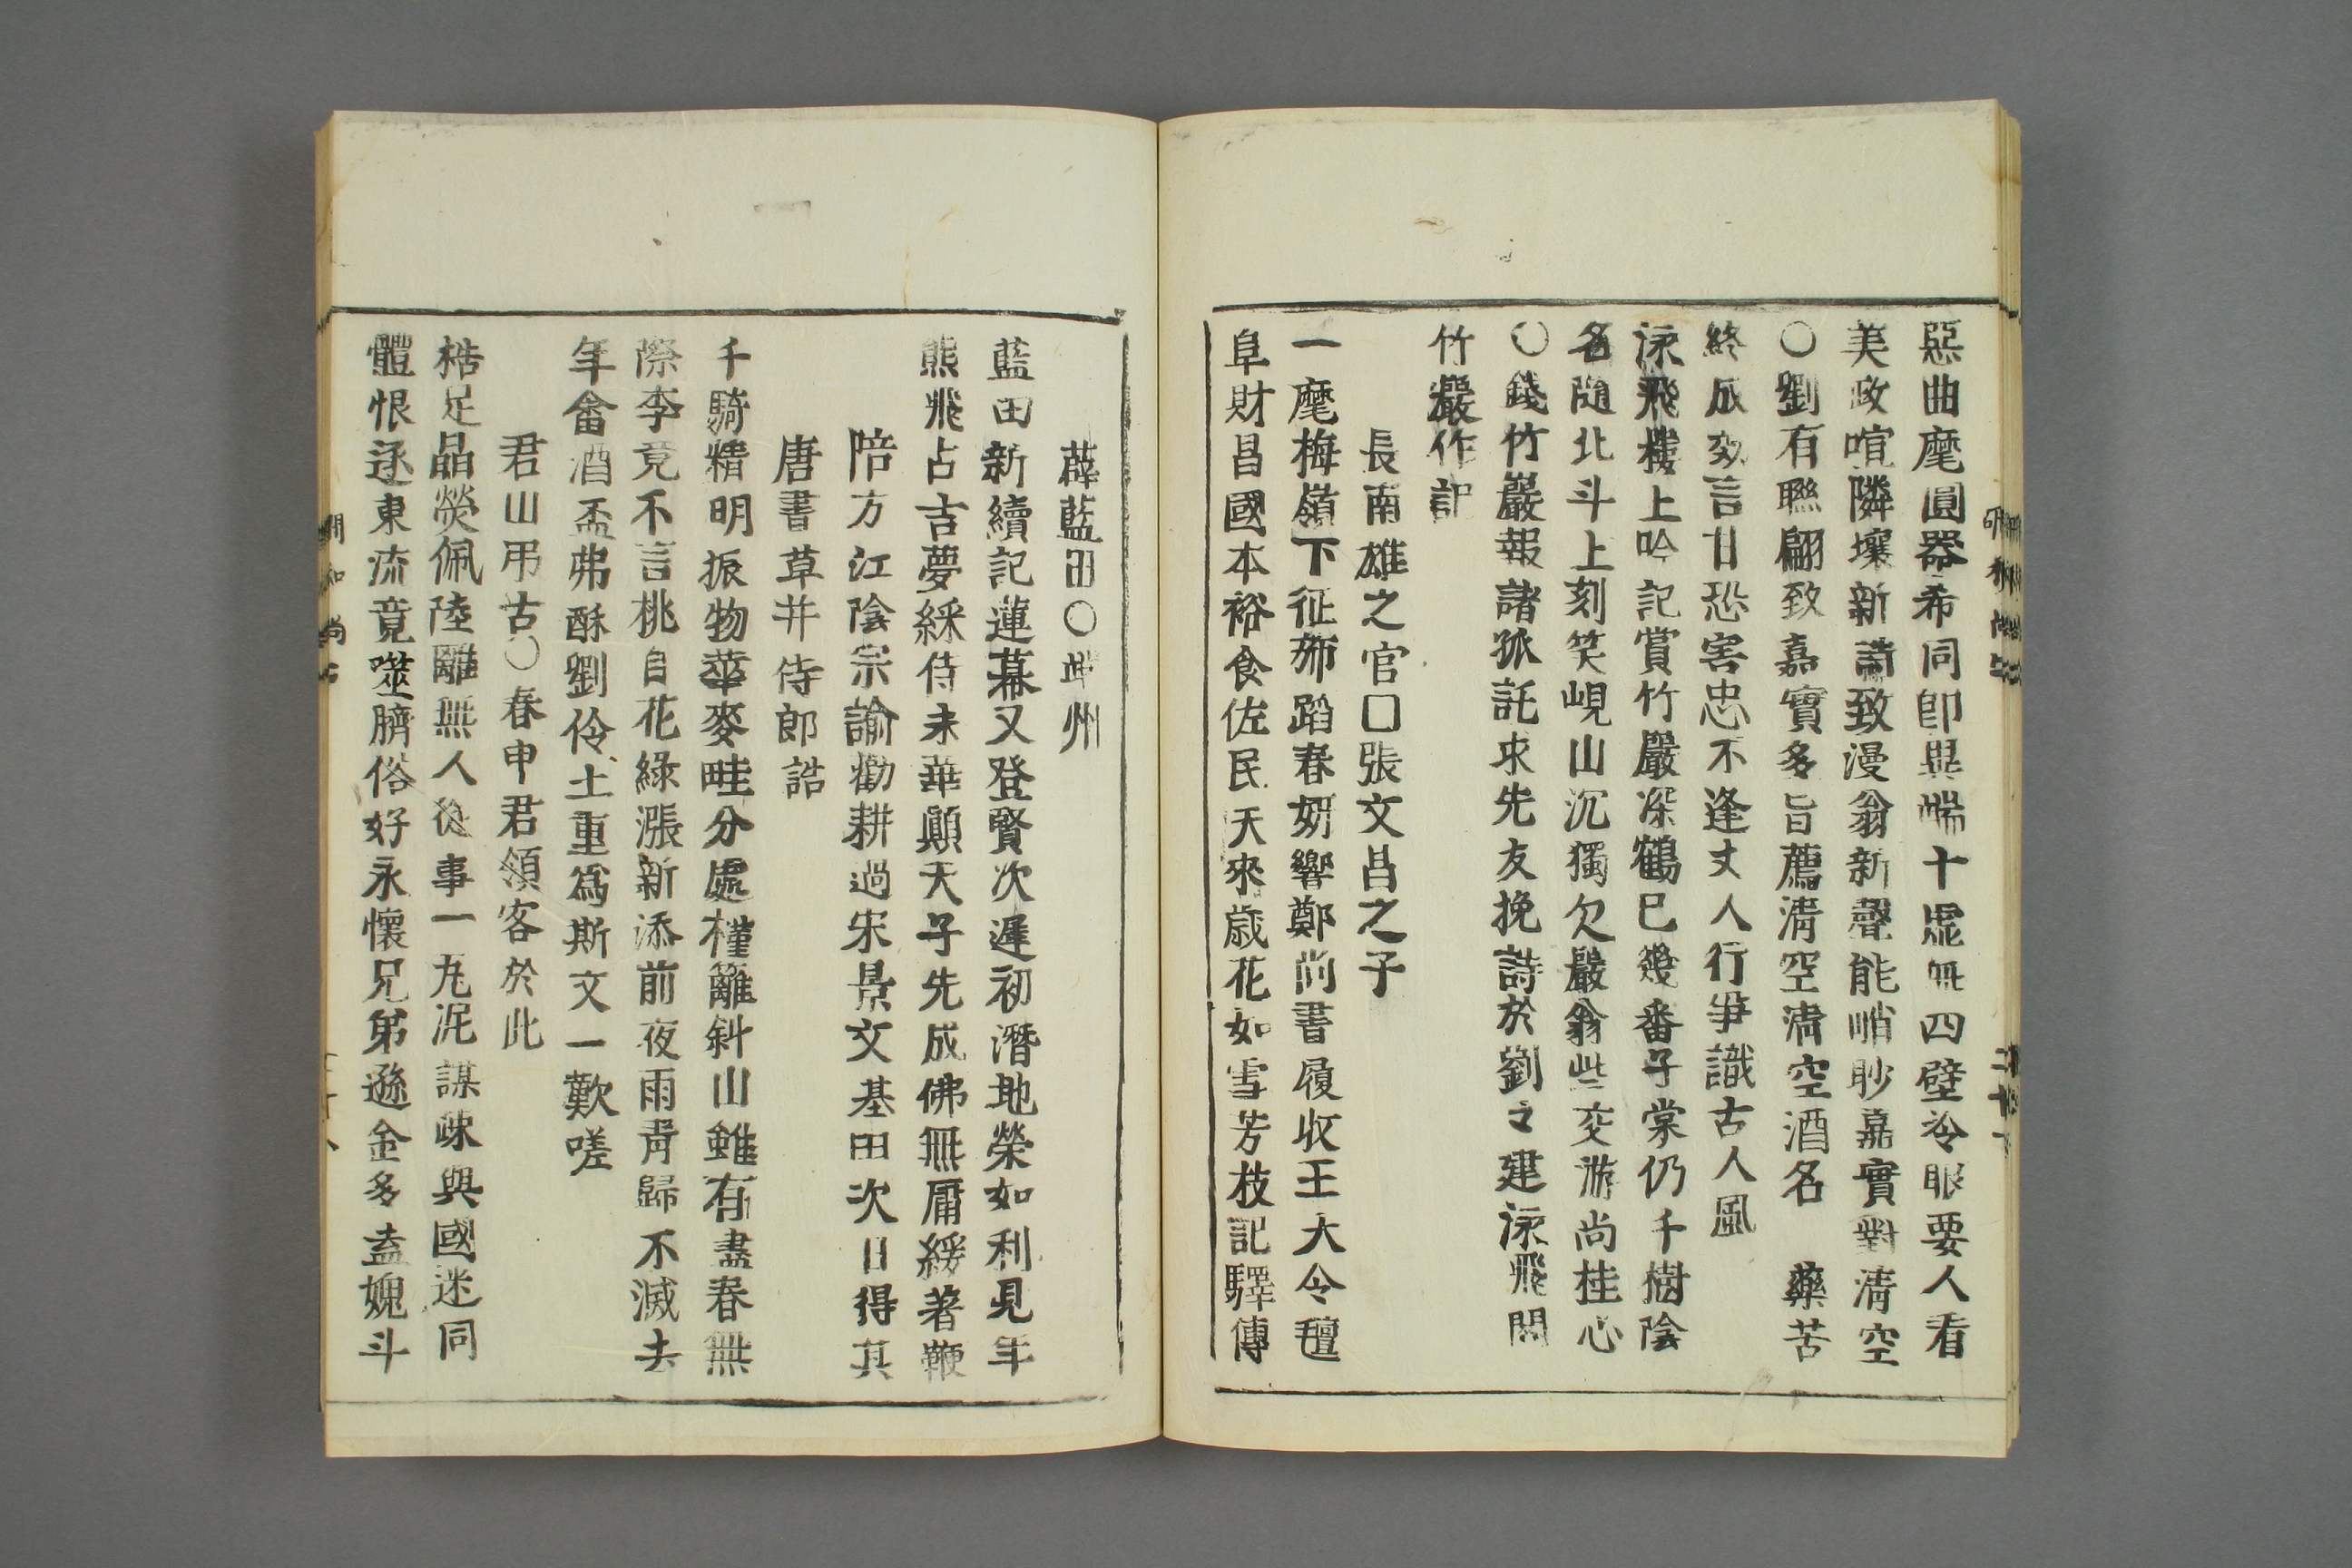 惡曲麾圓器希同卽異喘十虛無四壁冷眼要人看
美政喧隣壤新詩致漫翁新聲能峭眇嘉實對淸空
○劉有聯翩致嘉實多旨薦淸空淸空酒名　藥苦
終成效言甘恐害忠不逢丈人行爭識古人風
泳飛樓上吟記賞竹嚴深鶴巳幾番子棠仍千樹陰
名隨北斗上刻笑峴山沉獨欠嚴翁些交游尚桂心
○錢竹嚴報諸孤託求先友挽詩於劉之建泳飛閣
竹嚴作記
長南雄之官□張文昌之子
一麾梅嶺下征旆蹈春妍響鄭尚書履收王大令氊
阜財昌國本裕食佐民天來歲花如雪芳枝記驛傳
薛藍田○
藍田新續記蓮幕又登賢次遲初潛地榮如利見年
熊飛占吉夢綵侍未華顚天子先成佛無庸緩著鞭
陪方江陰宗諭勸耕過宋景文基田次日得其
唐書草并侍郎誥
千騎精明振物華麥畦分處槿籬斜山雖有盡春無
際李竟不言桃自花綠漲新添前夜雨靑歸不滅去
年畬酒盃弗酥劉伶土重爲斯文一歎嗟
君山弔古○春申君領客於此
梏足晶熒佩陸離無人從事一丸泥謀疎與國迷同
體恨逐東流竟噬臍俗好永懷兄弟遜金多盍媿斗